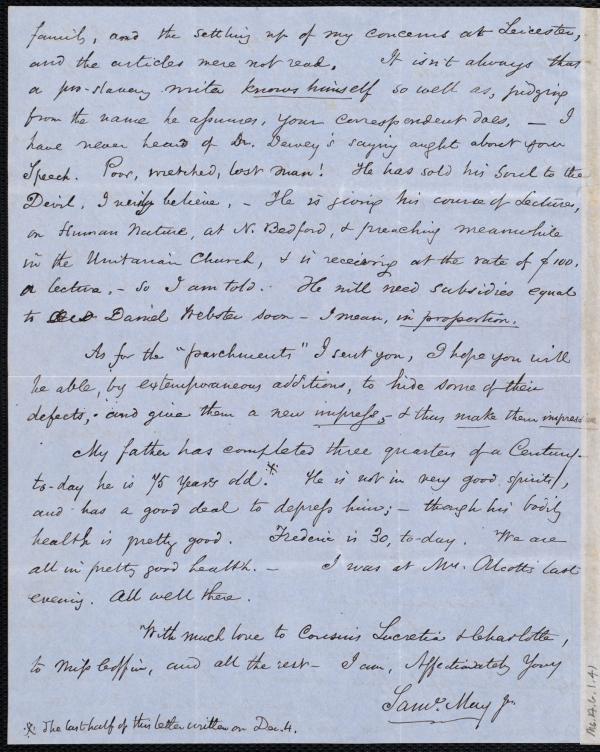 family, and the settling up of my concerns at Leicester,
and the articles were not read. It isn't always that
a pro-slavery writer knows himself so well as, judging
from the name he assumes, your correspondent does, — I
have never heard of Dr. Dewey's saying aught about your
Speech. Poor, wretched, lost man! He has sold his Soul to the
Devil, I verily believe, - He is giving his course of Lectures,
on Human Nature, at N. Bedford, & preaching meanwhile
in the Unitarian Church, & is receiving at the rate of $100.
a lecture, - so I am told. He will need subsidies equal
to Daniel Webster soon - I mean, in proportion.
As for the "parchments" I sent you, I hope you will
be able, by extemporaneous additions, to hide some of their
defects, and give them a new impress, - & thus make them impressive
My father has completed three quarters of a Century -
to-day he is 75 years old.* He is not in very good spirits,
and has a good deal to depress him; - though his bodily
health is pretty good. Frederic is 30, to-day. We are
all in pretty good health. — I was at Mr. Alcott's last
evening. All well there.
With much love to Cousins Lucretia & Charlotte,
to Miss Coffin, and all the rest - I am, Affectionately Yours
Saml. May Jr.
* The last half of this letter written on Dec. 4.